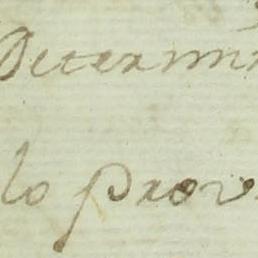 Determin
lo prov